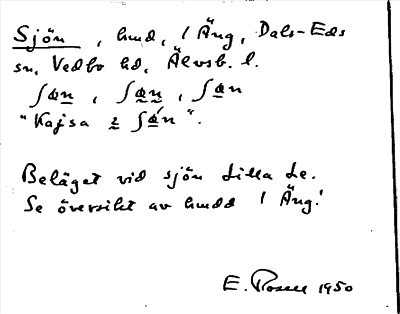 Sjön, hmd, 1 Äng, Dals-Eds
sn, Vedbo hd, Älvsb. l.
ʃøn, ʃøn, ʃøn
"Kajsa ʃøn".
Beläget vid sjön Lilla Le.
Se översikt av hmdd 1 Äng!
E. Rosell 1950